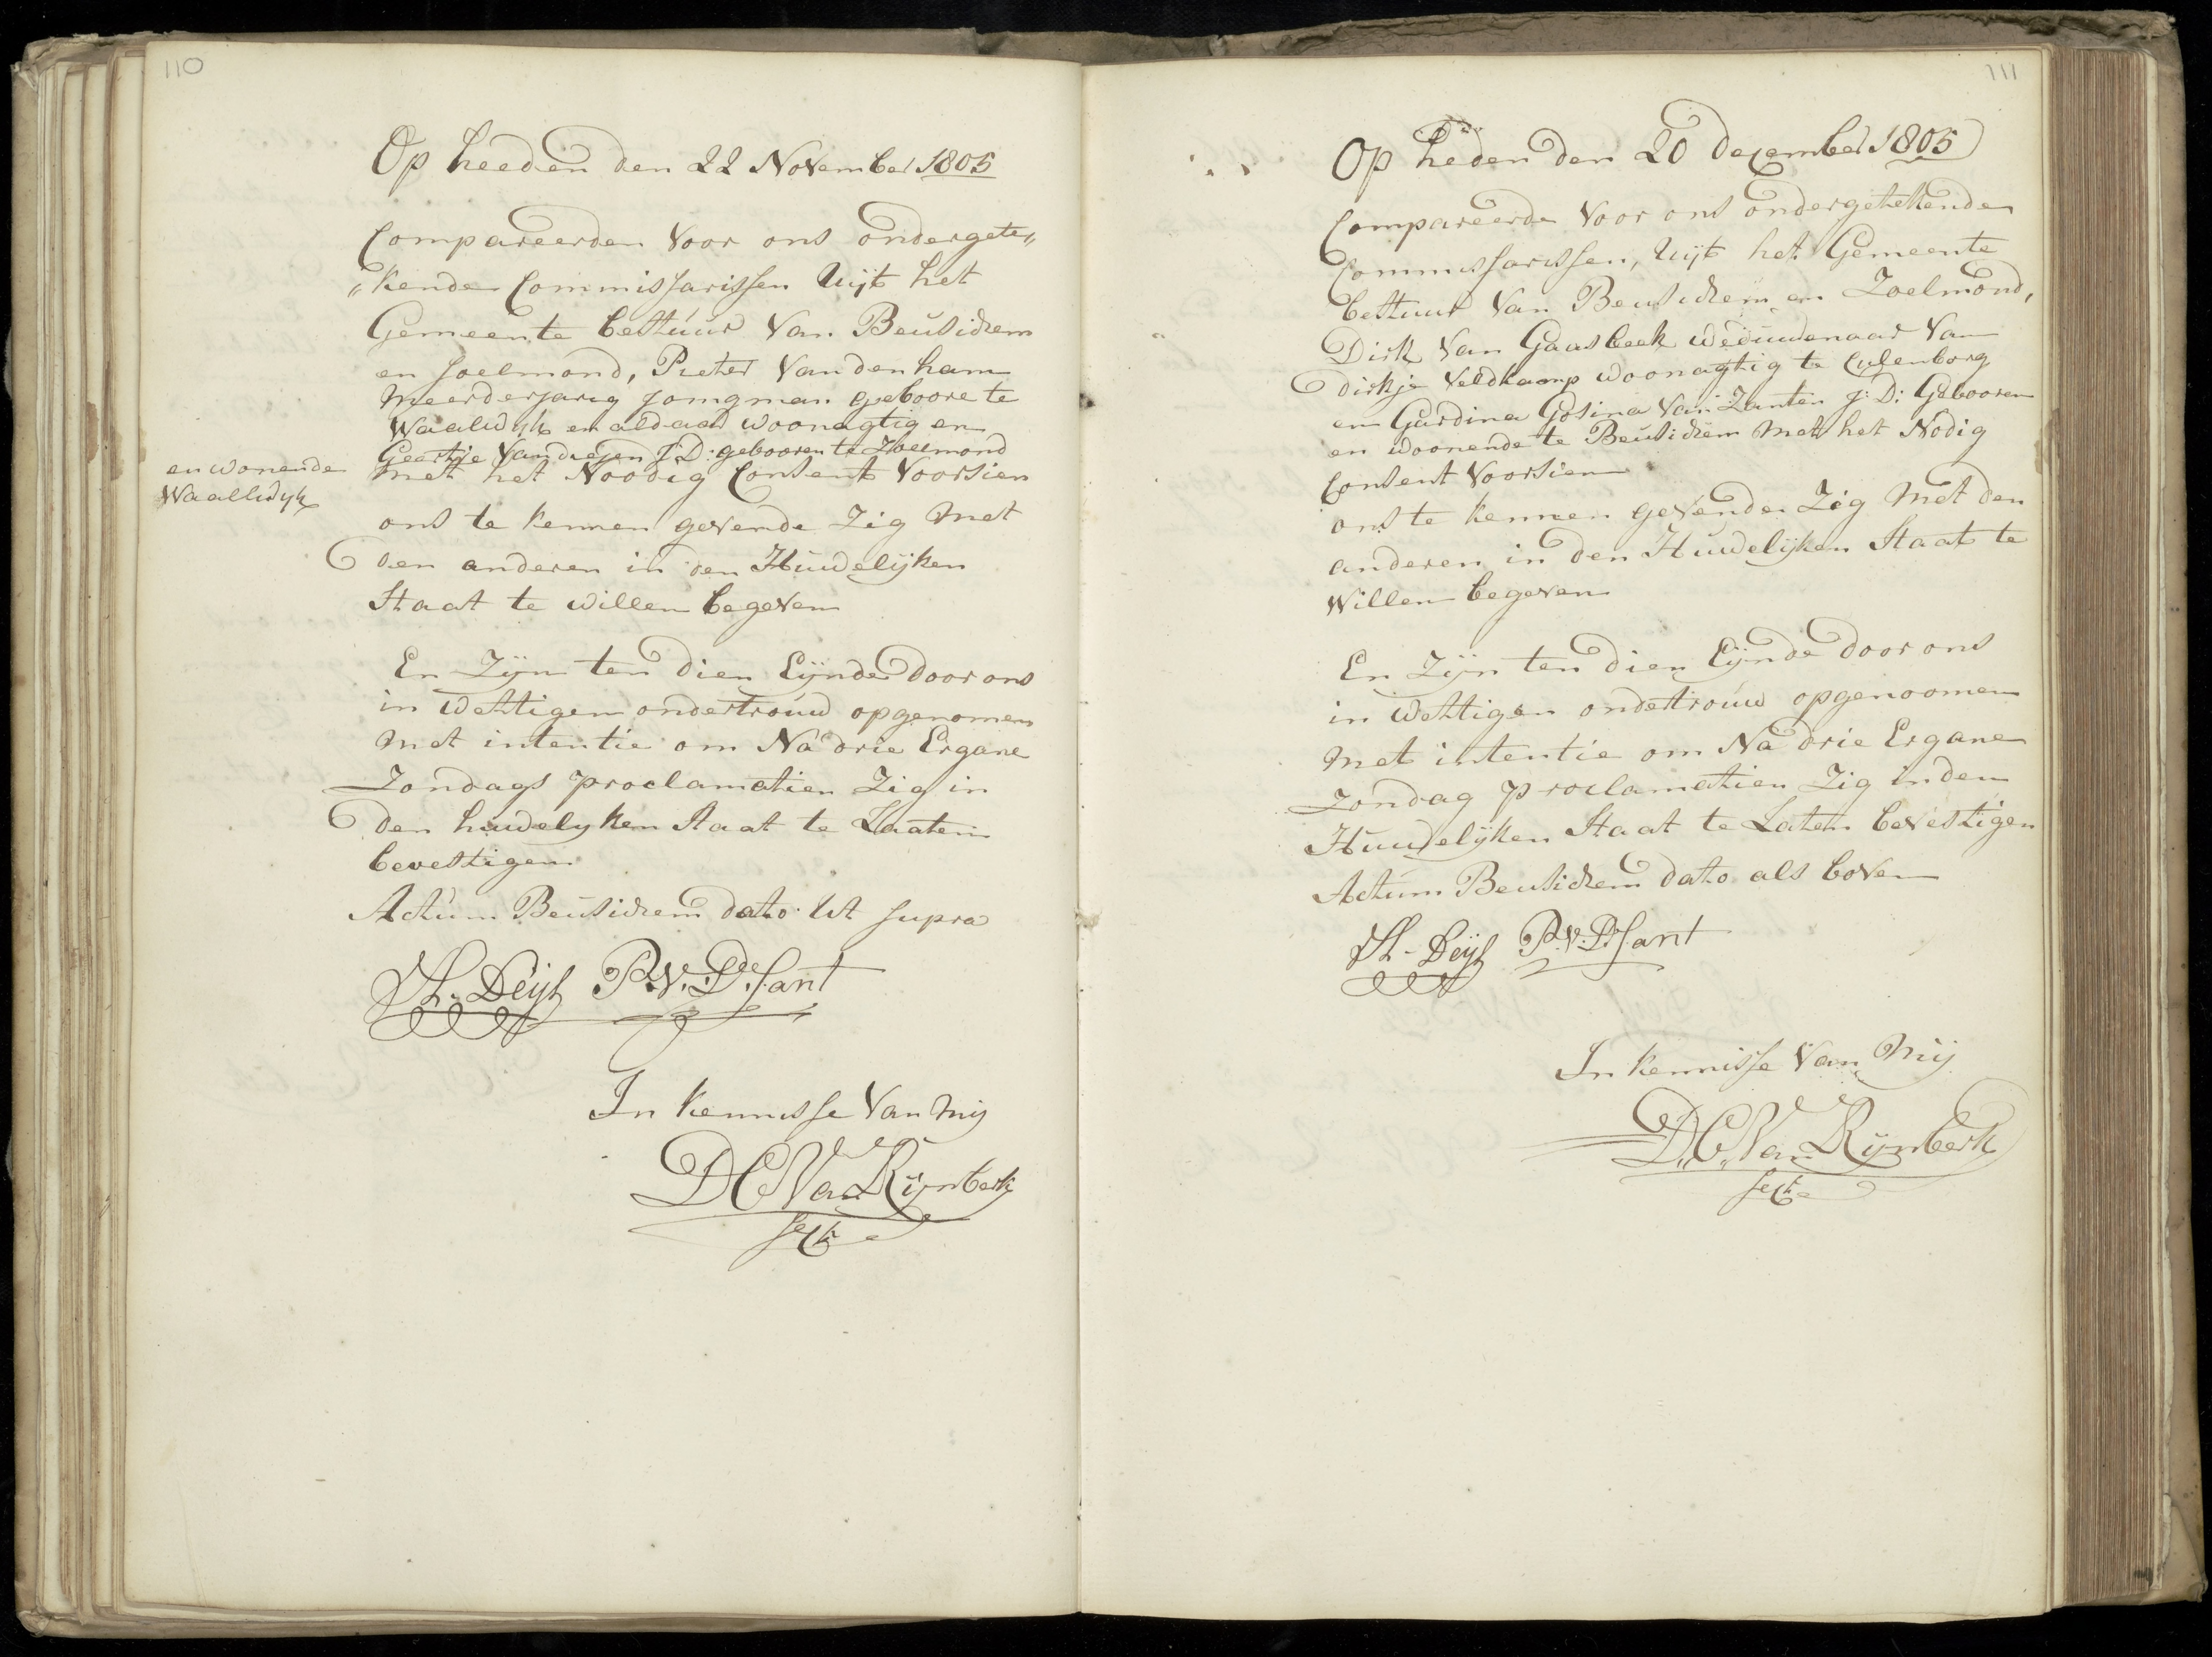 110
Op heeden den 22 November 1805
Compareerden Voor ons ondergete„
„kende Commissarissen Uijt het
Gemeente bestuur Van Beusichem
en Soelmond, Pieter Van den ham
Meerderjarig Jongman geboore te
Waalwyk en aldaar woonagtig en
Geertje Van drejen J:D: gebooren te Zoelmond
en wonende
Waallwyk
met het Noodig Consent Voorsien
ons te kennen gevende Zig met
den anderen in den Huwelijken
Staat te willen begeven
En Zijn ten dien Eijnde door ons
in Wettigen ondertrouw opgenomen
met intentie om Na drie Ergane
Zondags proclamatien Zig in
den huwelyken Staat te Laaten
bevestigen
Actum Beusichem dato Ut supra
Th. Deijl P.V.D. Sant
In kennisse Van mij
D C Van Rijnberk
Sect
111
Op heden den 20 December 1805
Compareerde Voor ons ondergetekende
Commissarissen, Uijt het Gemeente
bestuur Van Beusichem en Zoelmond,
Dirk Van Gaasbeek weduwenaar Van
Dirkje Veldkamp woonagtig te Culenborg
en Gardina Gosina Van Zanten J:D: Gebooren
en woonende te Beusichem met het Nodig
Consent Voorsien
ons te kennen gevende Zig met den
anderen in den Huwelijken Staat te
Willen begeven
En Zijn ten dien Eijnde door ons
in Wettigen ondertrouw opgenoomen
met intentie om Na drie Ergane
Zondag proclamatien Zig in den
Huwelijken Staat te Laten bevestigen
Actum Beusichem dato als boven
Th. Deijl P.V.D. Sant
In kennisse Van Mij
D.C. Van Rijnberk
Sect